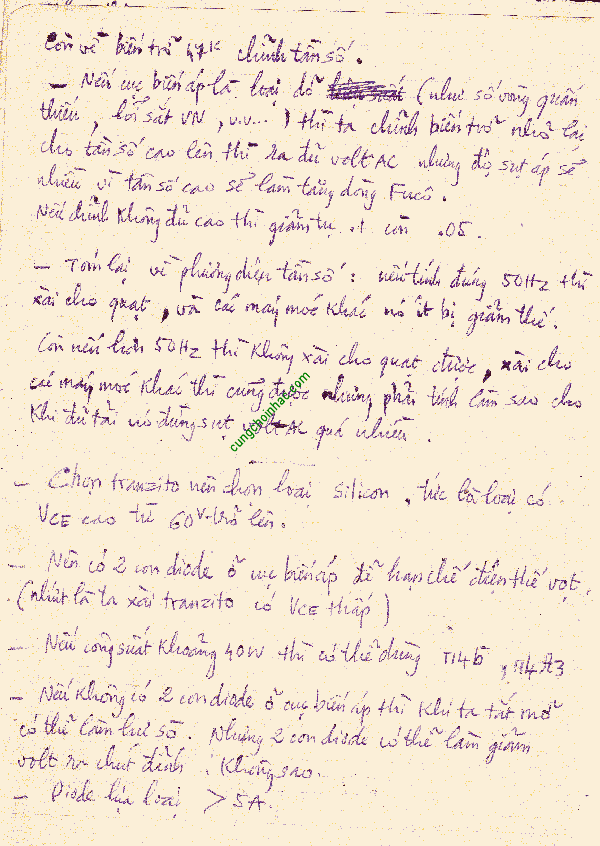 Còn về biến trở 47K chỉnh tần số.
– Nếu cục biến áp là loại dỏ (như số vòng quấn
thiếu, lõi sắt VN, v.v... ) thì ta chỉnh biến trở nhỏ lại
cho tần số cao lên thì ra đủ volt AC nhưng độ sụt áp sẽ
nhiều vì tần số cao sẽ làm tăng dòng Fucô.
Nếu chỉnh không đủ cao thì giảm tụ .1 còn .05.
– Tóm lại về phương diện tần số : nếu tính đúng 50Hz thì
xài cho quạt, và các máy móc khác nó ít bị giảm thế.
Còn nếu hơn 50Hz thì không xài cho quạt được, xài cho
các máy móc khác thì cũng được nhưng phải tính làm sao cho
khi đủ tải nó đừng sụt volt AC quá nhiều.
cungchoiphat.com
– Chọn tranzito nên chọn loại silicon, tức là loại có
VCE cao từ 60V trở lên.
– Nên có 2 con diode ở cục biến áp để hạn chế điện thế vọt,
(nhứt là ta xài tranzito có VCE thấp)
– Nếu công suất khoảng 40W thì có thể dùng
– Nếu không có 2 con diode ở cục biến áp thì khi ta tắt mở
có thể làm hư sò. Nhưng 2 con diode có thể làm giảm
volt ra chút đỉnh. Không sao.
– Diode lựa loại > 5A.